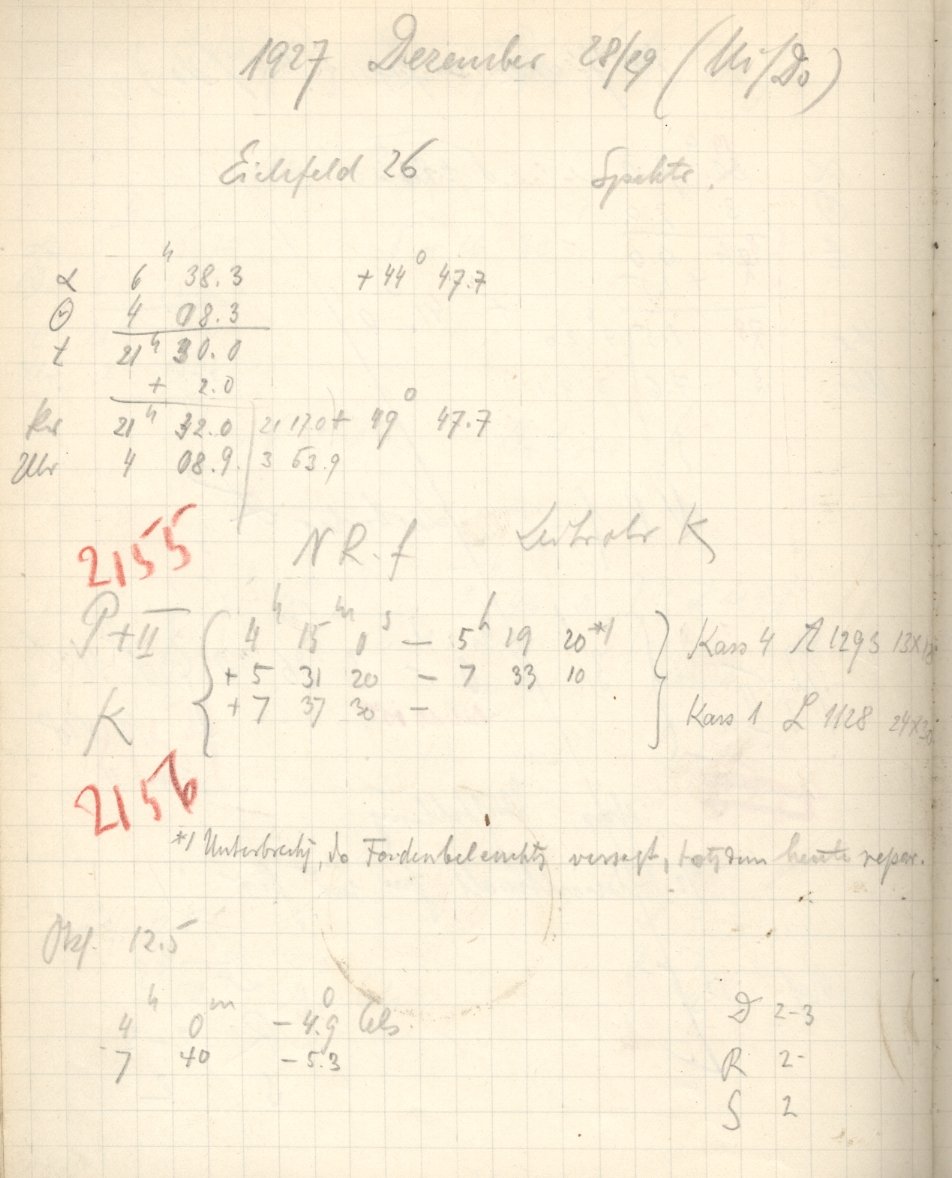 1927 Dezember 28/29 (Mi/Do)
Eichfeld 26 Spektr.
α 6h 38.3 +44° 47.7
Θ 4 08.3
t 21h 30.0
+ 2.0
Kr 21h 32.0 21 17.0 + 49° 47.7
Uhr 4 08.9 3 53.9
2155 N R. f Leitrohr K
P+II 4h 15m 0s — 5h 19 20 *)
+ 5 31 20 — 7 33 10
K + 7 37 30 —
Kass 4 A 1293 13x18
Kass 1 L 1128 24x30
2156
*) Unterbrechg, da Fadenbeleuchtg versagt, trotzdem heute repar.
Okf. 12.5
4h 0m — 4.9° Cels.
7 40 — 5.3
D 2-3
R 2-
S 2